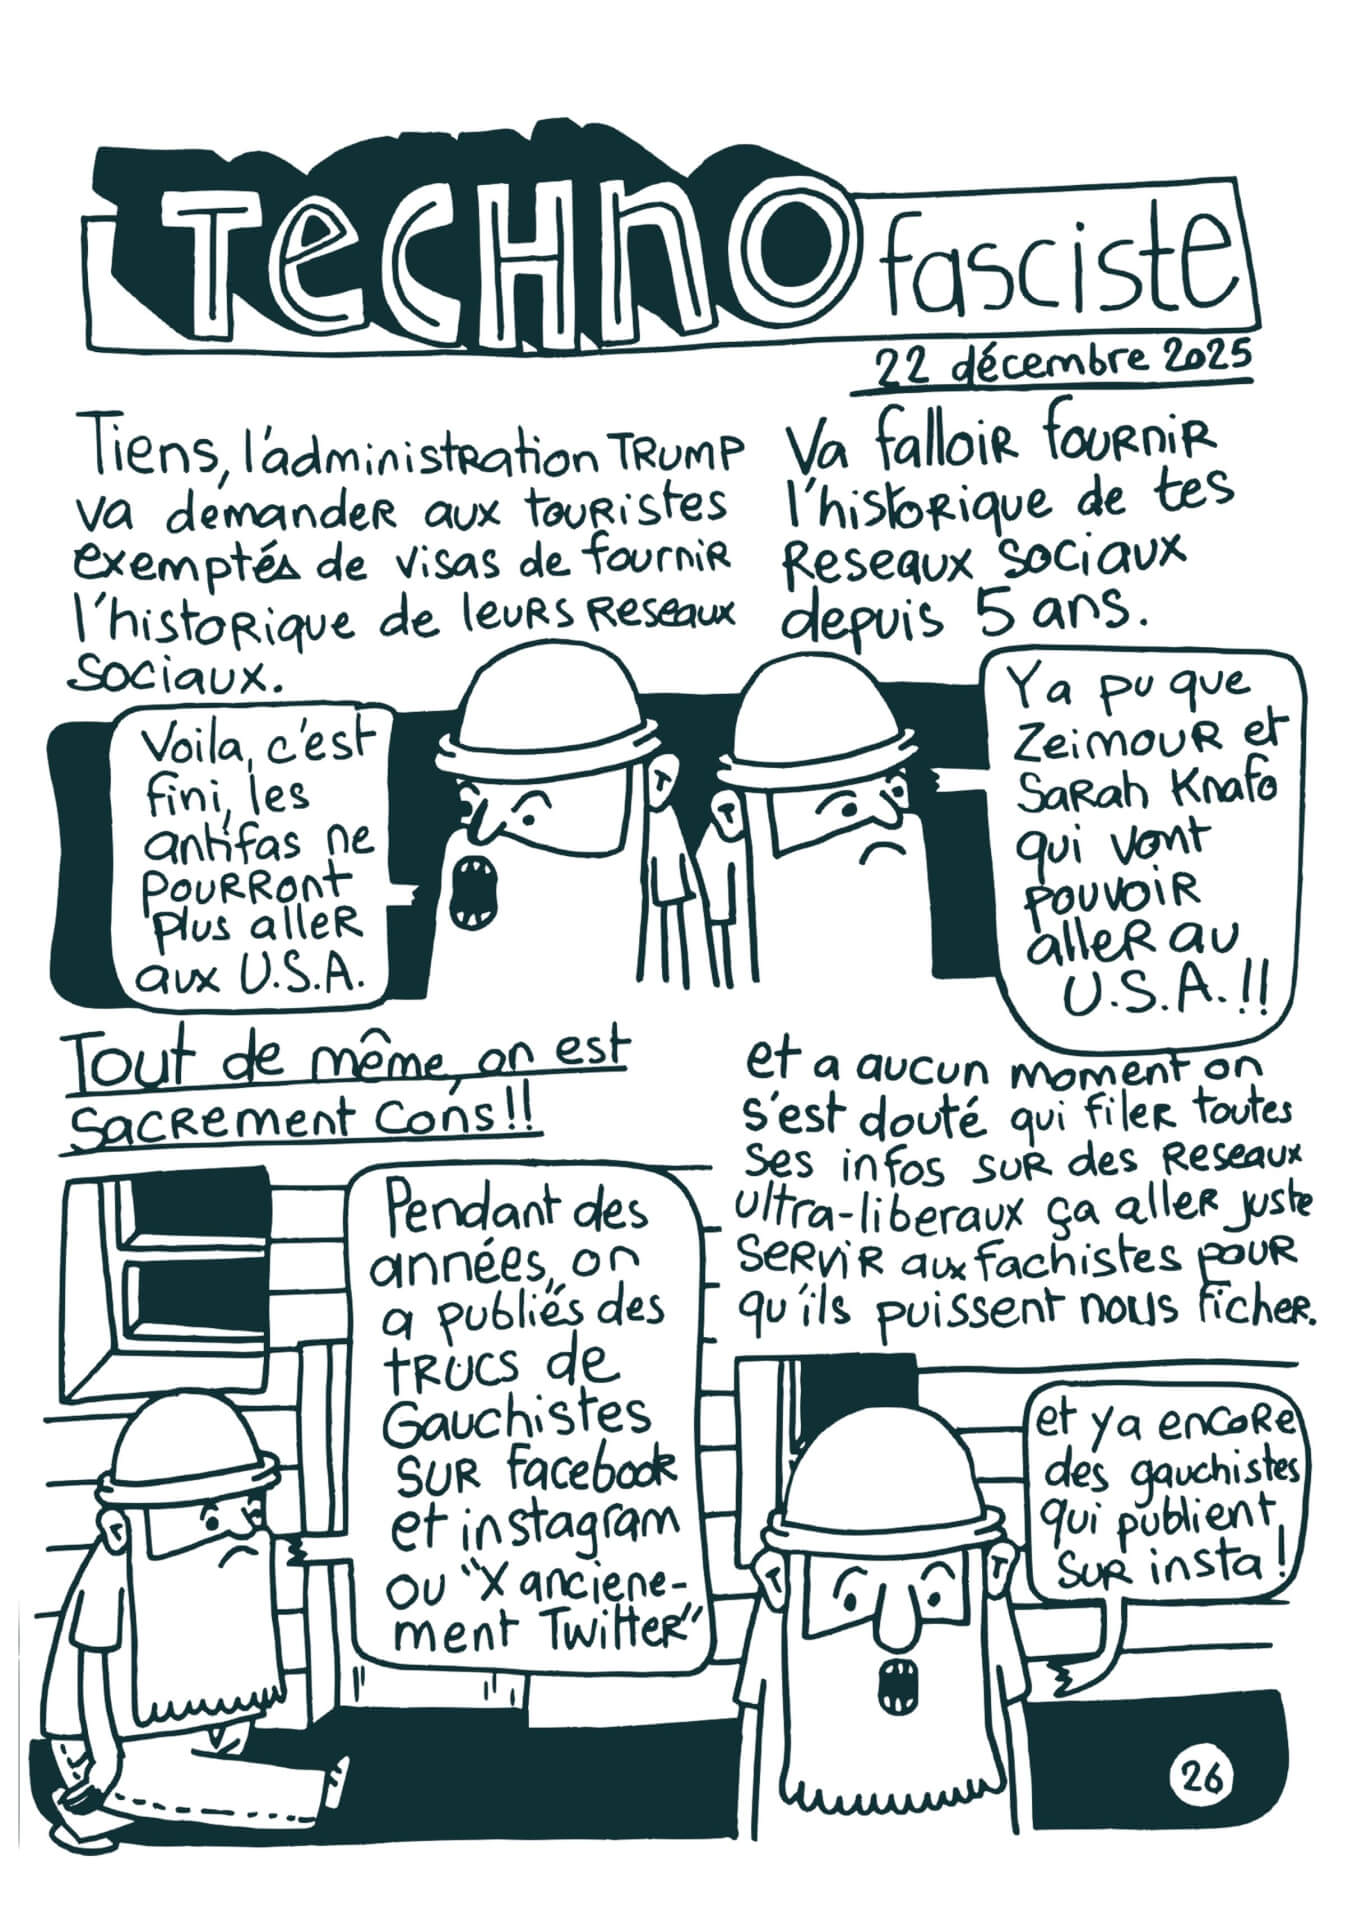 TECHNO fasciste
22 décembre 2025
Tiens, l'administration TRUMP
va demander aux touristes
exemptés de visas de fournir
l'historique de leurs reseaux
sociaux.
Va falloir fournir
l'historique de tes
reseaux sociaux
depuis 5 ans.
Voila, c'est
fini, les
antifas ne
pourront
plus aller
aux U.S.A.
Ya pu que
Zeimour et
Sarah Knafo
qui vont
pouvoir
aller au
U.S.A.!!
Tout de même, on est
sacrement cons!!
Pendant des
années, on
a publiés des
trucs de
Gauchistes
sur facebook
et instagram
ou "X anciene-
ment Twitter"
et a aucun moment on
s'est douté qui filer toutes
ses infos sur des reseaux
ultra-liberaux ça aller juste
servir aux fachistes pour
qu'ils puissent nous ficher.
et ya encore
des gauchistes
qui publient
sur insta!
26